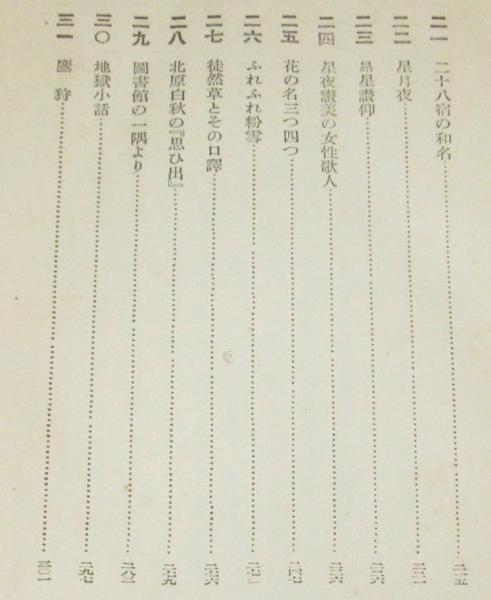 二一 二十八宿の和名……二一五
二二 星月夜……
二三 昴星讃仰……
二四 星夜讃美の女性歌人……
二五 花の名三つ四つ……二四七
二六 ふれふれ粉雪……
二七 徒然草とその口譯……
二八 北原白秋の『思ひ出』……二七九
二九 圖書館の一隅より……二八三
三〇 地獄小話……二九七
三一 鷹狩……三〇一